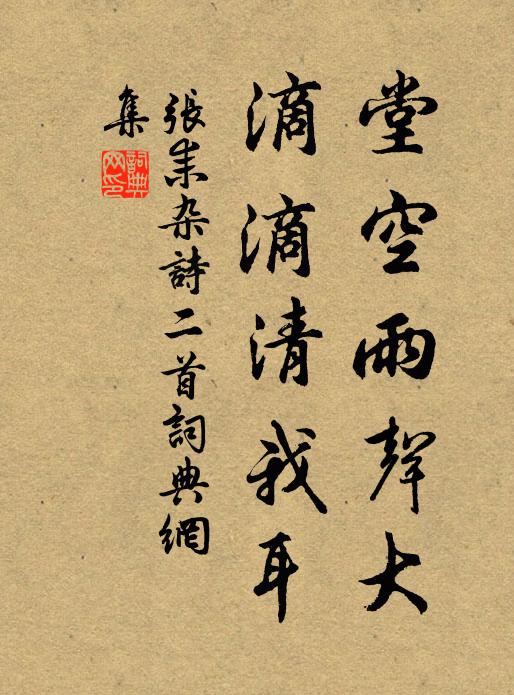 堂空雨聲大
滴滴清我耳
張耒杂詩二首詞典網
集
詞典网印